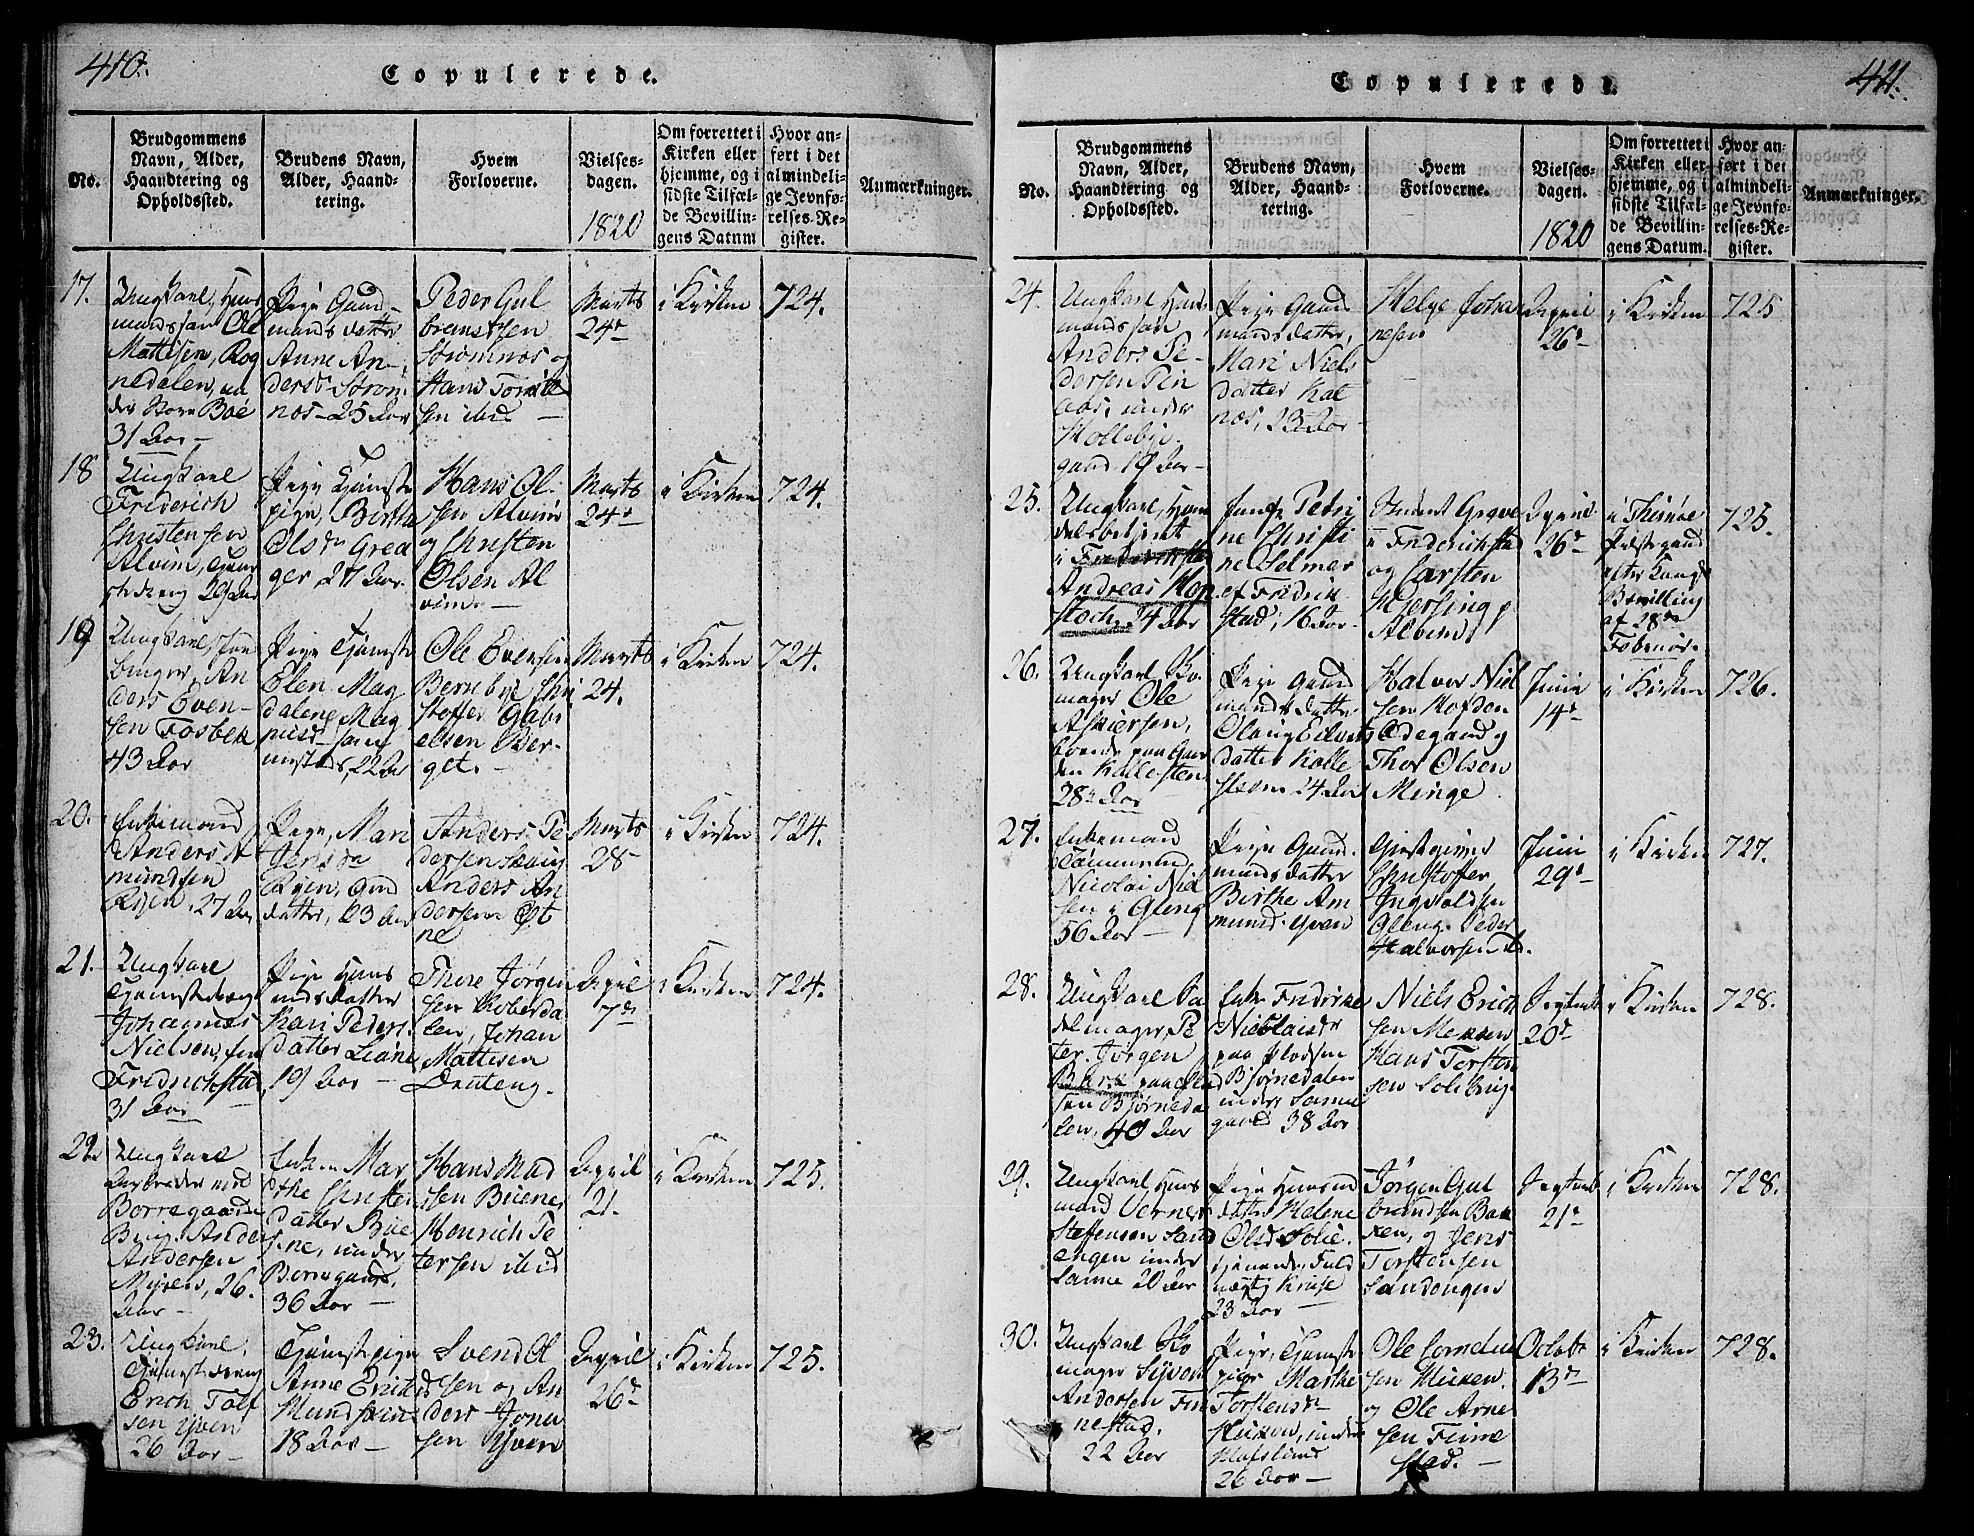 410.
Copulerede.
No.
Brudgommens
Navn, Alder,
Haandtering og
Opholdssted.
Brudens Navn,
Alder, Haand-
tering.
Hvem
Forloverne.
Vielses-
dagen.
1820
Om forrettet i
Kirken eller
hjemme, og i
sidste Tilfæl-
de Bevillin-
gens Datum
Hvor an-
ført i det
almindeli-
ge Jevnfø-
relses-Re-
gister.
Anmærkninger.
17.
Ungkarl, Huus
mandssøn Ole
Mattisen, Rog
nedalen, un
der Store Boe
31 Aar –
Pige Gaard-
mands datter
Anne An-
dersdr Strøm
nos – 25 Aar
Peder Gul
brandsen
Strømnos og
Hans
sen ibid –
Marts
24de
i Kirken
724.
18
Ungkarl
Friderich
Christensen
Alvim,
29 Aar
Pige Tjeneste
pige, Birthe
Olsdr Grea
ger 27 Aar.
Hans Ol-
sen Alvim
og Christen
Olsen Al
vim –
Marts
24de
i Kirken
724.
19
Ungkarl,
Anders Even-
sen Fosbek
43 Aar
Pige Tjeneste
Elen Mag
dalene Mag
nusd
22 Aar
Ole Evensen
Berneby Chri
stoffer Gabri
elsen Ber-
get.
Marts
24.
i Kirken
724.
20.
Enkemand
Anders A
mundsen
Risen, 27 Aar
Pige, Mari
Jensdr
Rien, Gaard
datter, 63 Aar
Anders Pe
dersen
Anders An
dersen Øst
ne
Marts
28
i Kirken
724.
21.
Ungkarl
Johannes
Nielsen, fra
Fridrichstad,
31 Aar
Pige Huus
mds datter
Kari Peders
datter Liane
19 Aar –
Thore Jørgen
sen Roberda
len, Johan
Mattisen
Drateng.
April
7de
i Kirken
724.
22.
Ungkarl
Arbeider ved
Borregaards
Brug. Anders
Andersen
Myren, 26.
Aar –
Enken Mar
the Christen
datter Bøe
ne, under
Borregaard.
36 Aar –
Hans Mad
sen Buene,
Henrich Pe
tersen ibid
April
21.
i Kirken
725.
23.
Ungkarl,
Tjeneste dreng
Erich Tolf
sen Yven
26 Aar
Tjenestepige
Anne Erichsd
18 Aar –
Svend Ol
sen og An
ders Jona
sen Yven
April
26de
i Kirken
725.
411.
Copulerede.
No.
Brudgommens
Navn, Alder,
Haandtering og
Opholdssted.
Brudens Navn,
Alder, Haand-
tering.
Hvem
Forloverne.
Vielses-
dagen.
1820
Om forrettet i
Kirken eller
hjemme, og i
sidste Tilfæl-
de Bevillin-
gens Datum.
Hvor an-
ført i det
almindeli-
ge Jevnfø-
relses-Re-
gister.
Anmærkninger.
24.
Ungkarl Huus
mandssøn
Anders Pe-
dersen
under
Hollebye
gaard 19 Aar –
Pige Gaard
mands datter,
Mari Niels
datter Kal
nos, 23 Aar –
Helge Johan
nesen
April
26de
i Kirken
725
25.
Ungkarl, Han
delsbetjent
i Frederikstad
Andreas Kop
stoch, 34 Aar
Jomfr Petri
ne Christi
ne Helmer
af Fridrik
stad, 16 Aar.
Student Grøve
i Friderikstad
og Carsten
Hjersing p
Alvim
April
26de
i Thunøe
Præstegaard
efter Kongl
Bevilling
af 28de
Februar.
725.
26.
Ungkarl Ko
mager Ole
Askiersen,
boende paa Gaar
den Kallesten
28 Aar
Pige Gaard
mands datter
Olaug Eilerts
datter Kalle
steen 24 Aar
Halvor Niel
sen Hofden
Ødegaard og
Thor Olsen
Minge
Juni
14de
i Kirken
726.
27.
Enkemand
Nicolai Niel
sen i Gleng
56 Aar –
Pige Gaard
mands datter
Birthe Am
mundd Yven
Giestgiver
Christoffer
Ingvaldsen
Gleng. Peder
Halvorsen ibd.
Juni
29de
i Kirken
727.
28.
Ungkarl Sa
delmager, Pe
ter Jørgen
paa Plad
sen Bjørneda
len, 40 Aar
Enke Fridrike
Nicolaisdr
paa Pladsen
Bjørnedalen
under Sanne
gaard 38 Aar
Niels Erich
sen
Hans Torsten
sen Solberg.
Septemb
20de
i Kirken
728.
29.
Ungkarl Huus
mand Verner
Steffensen Sand
engen under
Sanne 20 Aar
Pige Huusmd
datter Helene
Olsd Solie.
23 Aar –
Jørgen Gul
brandsen Bak
ken, og Jens
Torstensen
Sandengen
Septemb
21de
i Kirken
728.
30.
Ungkarl Sko
mager Syver
Andersen Fin
nestad.
22 Aar
Pige, Tjeneste
pige Marthe
Torstensdr
under
Hafslund
26 Aar –
Ole Cornelius
sen
og Ole Arne
sen Finne
stad. –
Octobr
13de
i Kirken
728.